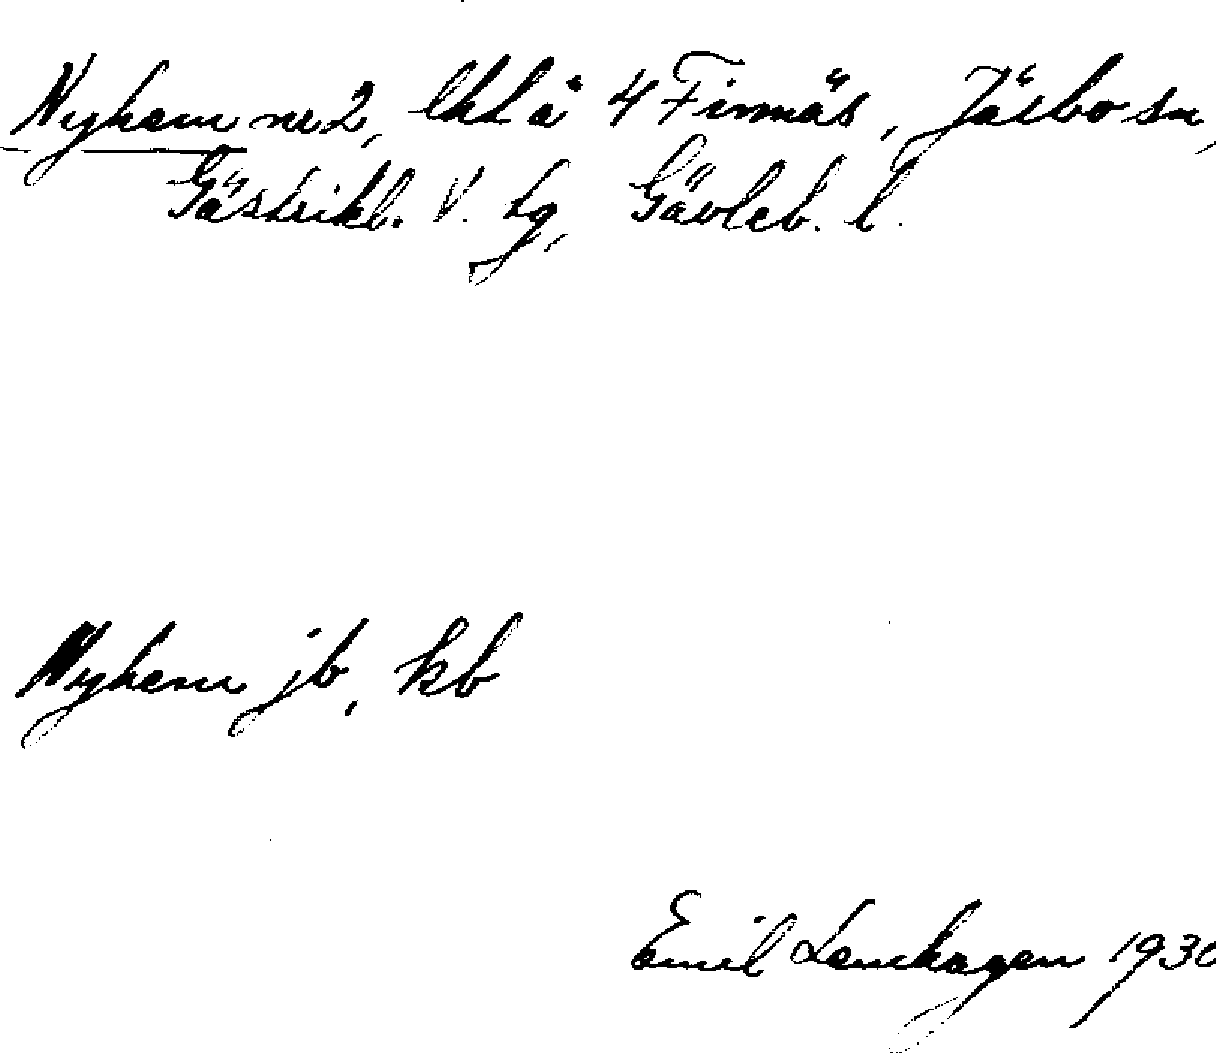 Nyhem nr 2, lht å 4 Finnäs, Järbo sn,
Gästrikl. V. tg, Gävleb. l.
Nyhem jb, kb
Emil Lenhagen 1930